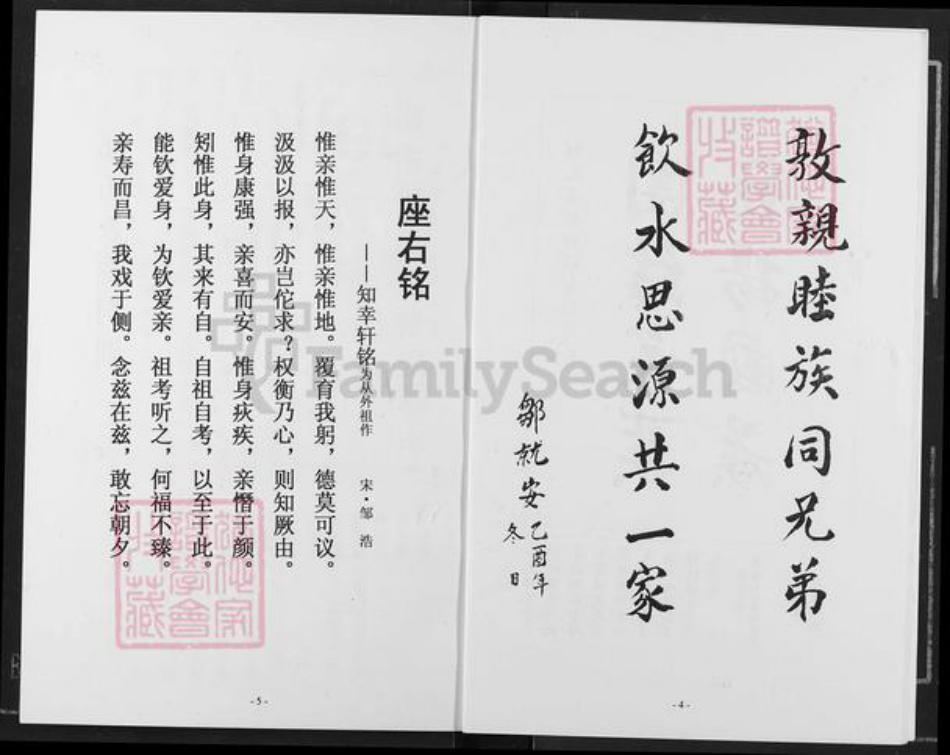 敦親睦族同兄弟
飲水思源共一家
鄒就安乙酉年
冬日
-4-
座右铭
——知幸轩铭为从外祖作 宋·邹浩
惟亲惟天，惟亲惟地。覆育我躬，德莫可议。
汲汲以报，亦岂佗求？权衡乃心，则知厥由。
惟身康强，亲喜而安。惟身疢疾，亲憯于颜。
矧惟此身，其来有自。自祖自考，以至于此。
能钦爱身，为钦爱亲。祖考听之，何福不臻。
亲寿而昌，我戏于侧。念兹在兹，敢忘朝夕。
-5-
FamilySearch